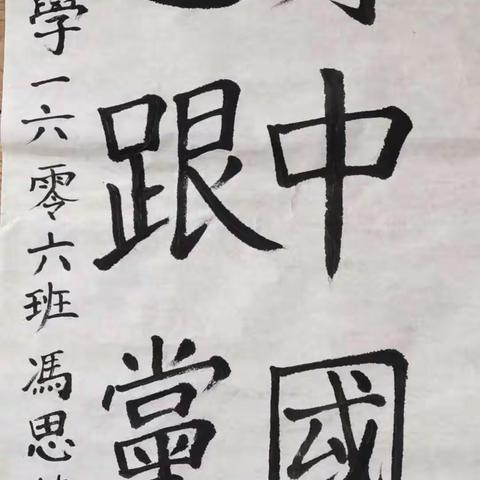 中國
跟黨
學一六零六班馮思